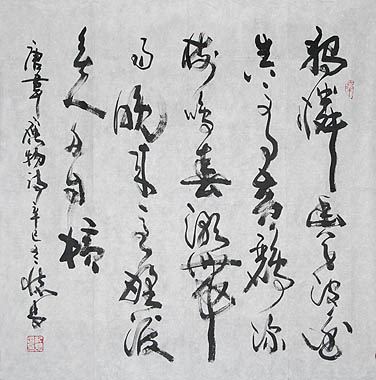 獨憐幽草澗邊
生上有黃鸝深
樹鳴春潮帶
雨晚來急野渡
無人舟自橫
唐韋應物詩辛巳